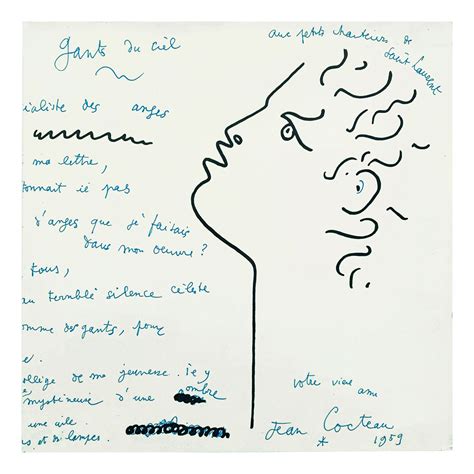 gants du ciel
aux petits chanteurs de
Saint Laurent
ialiste des anges
ma lettre,
onnait ie pas
d'anges que je faisais
dans mon oeuvre ?
tous,
au terrible silence céleste
omme des gants, pour
e.
ollège de ma jeunesse. ie y
mystérieuse d'une ombre
une aile.
es et si longes.
votre vieil ami
Jean Cocteau
* 1959